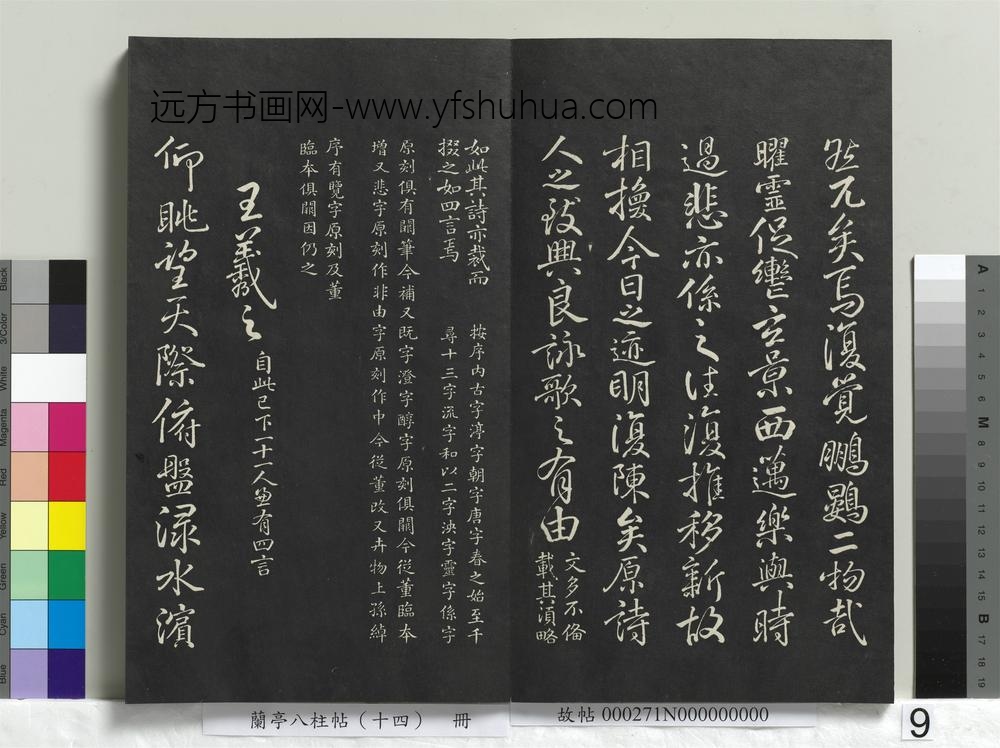 远方书画网-www.yfshuhua.com
然兀矣焉復覺鵬鷃二物哉
曜靈促轡玄景西邁樂與時
過悲亦係之往復推移新故
相換今日之迹明復陳矣原詩
人之致興良詠歌之有由
文多不備
載其湏略
如此其詩亦裁而
掇之如四言焉
按序內古字淳字朝字唐字春之始至千
尋十三字流字和以二字泱字靈字係字
原刻俱有闕筆今補又既字澄字醇字原刻俱闕今從董臨本
增又悲字原刻作非由字原刻作中今從董改又卉物上孫綽
序有覽字原刻及董
臨本俱闕因仍之
王羲之
自此已下一十一人並有四言
仰眺望天際俯盤淥水濱
蘭亭八柱帖（十四） 冊
故帖 000271N000000000
9
Black
3/Color
White
Magenta
Red
Yellow
Green
Cyan
Blue
A
1
2
3
4
5
6
M
8
9
10
11
12
13
14
15
B
17
18
19